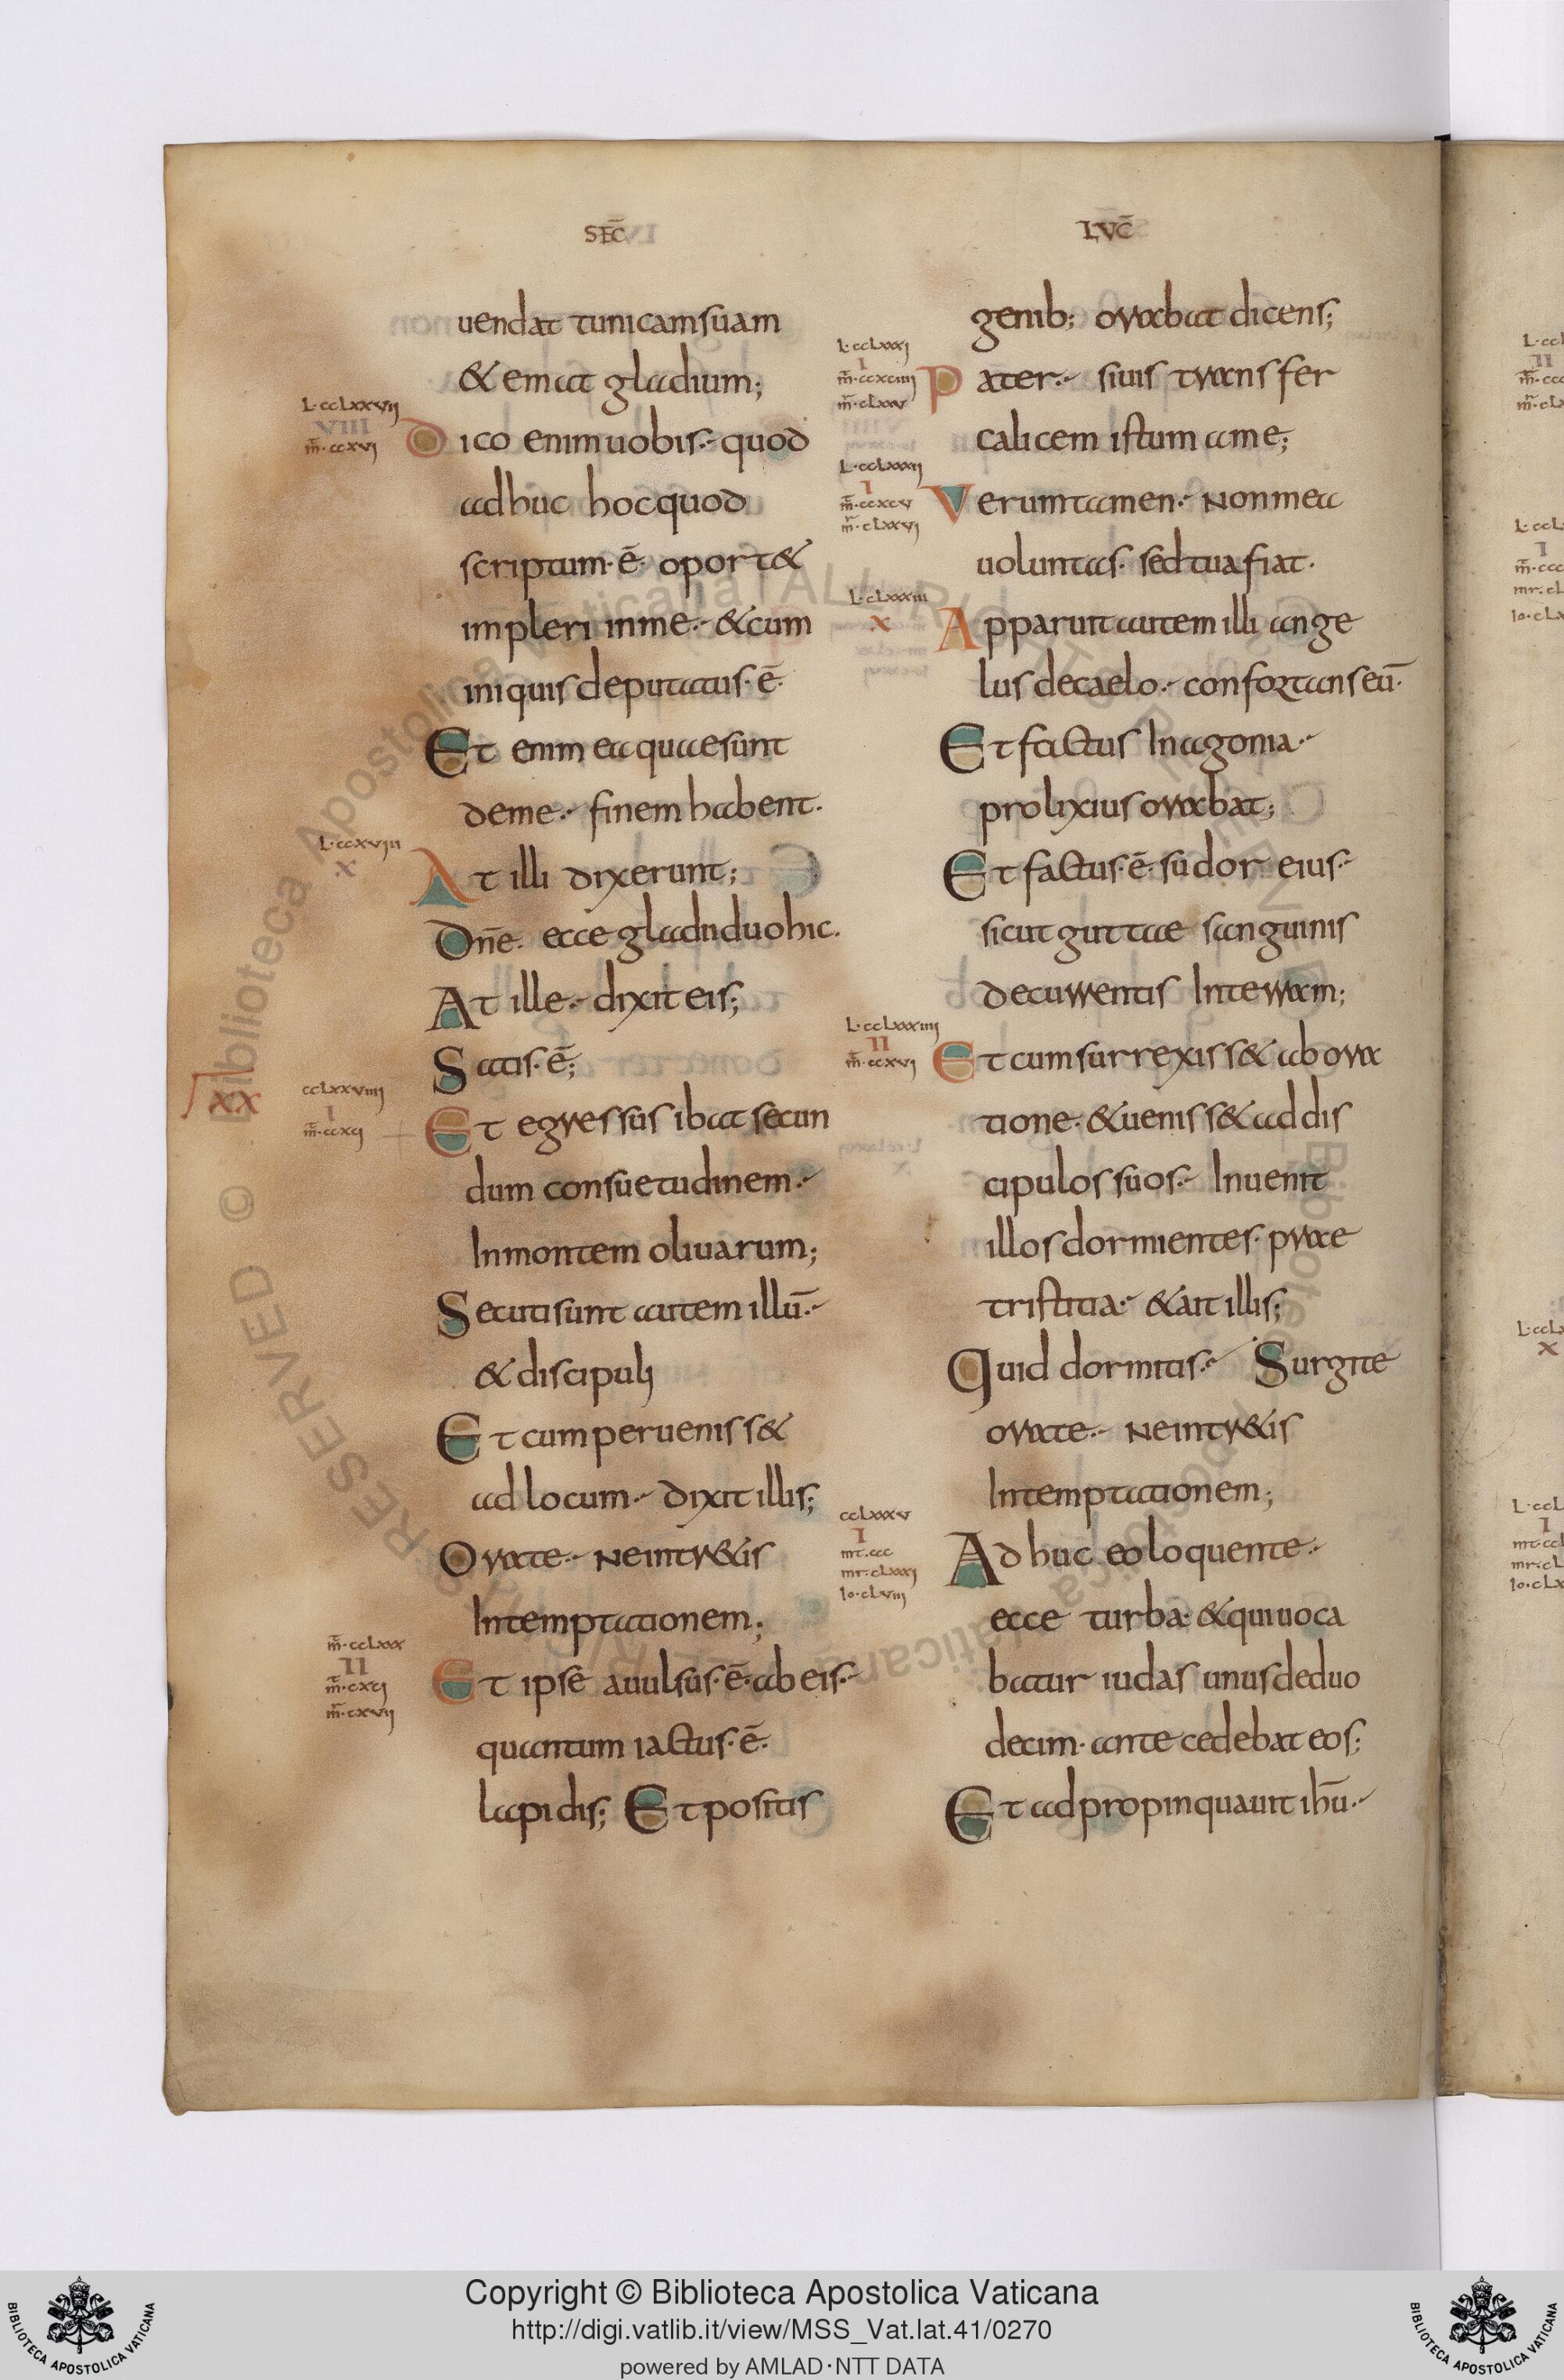 SEC̄
LVC̄
uendat tunicam suam
& emat gladium;
L·ccLxxvij
VIII
m̄·ccxvj
Dico enim uobis·quod
adhuc hoc quod
scriptum·ē· oport&
impleri in me·&cum
iniquis deputatus·ē·
Et enim ea quae sunt
de me· finem habent·
L·ccxviii
x
At illi dixerunt;
Dn̄e· ecce gladii duo hic·
At ille· dixit eis;
Satis·ē;
xx
ccLxxviiij
I
m̄·ccxcj
Et egressus ibat secun
dum consuetudinem·
In montem oliuarum;
Secuti sunt autem illū·
& discipuli
Et cum perueniss&
ad locum· dixit illis;
Orate· Ne intr&is
In temptationem;
m̄·ccLxxx
II
m̄·cxcj
m̄·cxvij
Et ipse auulsus·ē·ab eis·
quantum iactus·ē·
lapidis; Et positis
genib; orabat dicens;
L·ccLxxxj
I
m̄·ccxciiij
m̄·cLxxv
Pater· si uis transfer
calicem istum a me;
L·ccLxxxij
I
m̄·ccxcv
m̄·cLxxvj
Verumtamen· Non mea
uoluntas· sed tua fiat·
L·cLxxxiii
x
Apparuit autem illi ange
lus de caelo· confortans eū·
Et factus In agonia·
prolixius orabat;
Et factus·ē·sudor eius·
sicut guttae sanguinis
decurrentis In terram;
L·ccLxxxiiij
II
m̄·ccxvj
Et cum surrexiss& ab ora
tione·&ueniss&ad dis
cipulos suos· Inuenit
illos dormientes·prae
tristitia· &ait illis;
Quid dormitis· Surgite
orate· Ne intr&is
In temptationem;
ccLxxxv
I
mt·ccc
mr·cLxxxj
Io·cLviij
Adhuc eo loquente·
ecce turba·&qui uoca
batur iudas unus de duo
decim·ante cedebat eos;
Et adpropinquauit ih̄u·
Copyright © Biblioteca Apostolica Vaticana
http://digi.vatlib.it/view/MSS_Vat.lat.41/0270
powered by AMLAD·NTT DATA
BIBLIOTECA APOSTOLICA VATICANA
BIBLIOTECA APOSTOLICA VATICANA